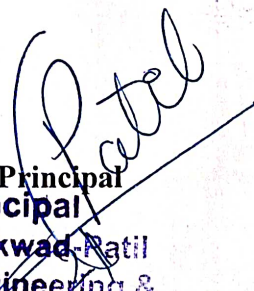 Patil
Principal
cipal
kwad-Patil
ineering &